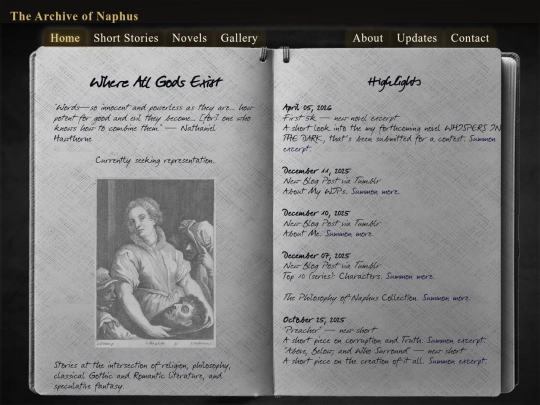 The Archive of Naphus
Home Short Stories Novels Gallery
About Updates Contact
Where All Gods Exist
"Words—so innocent and powerless as they are... how
potent for good and evil they become... [for] one who
knows how to combine them." — Nathaniel
Hawthorne
Currently seeking representation.
Stories at the intersection of religion, philosophy,
classical Gothic and Romantic literature, and
speculative fantasy.
Highlights
April 05, 2026
First 5k — new novel excerpt
A short look into the my forthcoming novel WHISPERS IN
THE DARK, that's been submitted for a contest. Summon
excerpt.
December 11, 2025
New Blog Post via Tumblr
About My WIPs. Summon more.
December 10, 2025
New Blog Post via Tumblr
About Me. Summon more.
December 07, 2025
New Blog Post via Tumblr
Top 10 (series): Characters. Summon more.
The Philosophy of Naphus Collection. Summon more.
October 25, 2025
"Preacher" — new short
A short piece on corruption and Truth. Summon excerpt.
"Above, Below, and Who Surround" — new short
A short piece on the creation of it all. Summon excerpt.